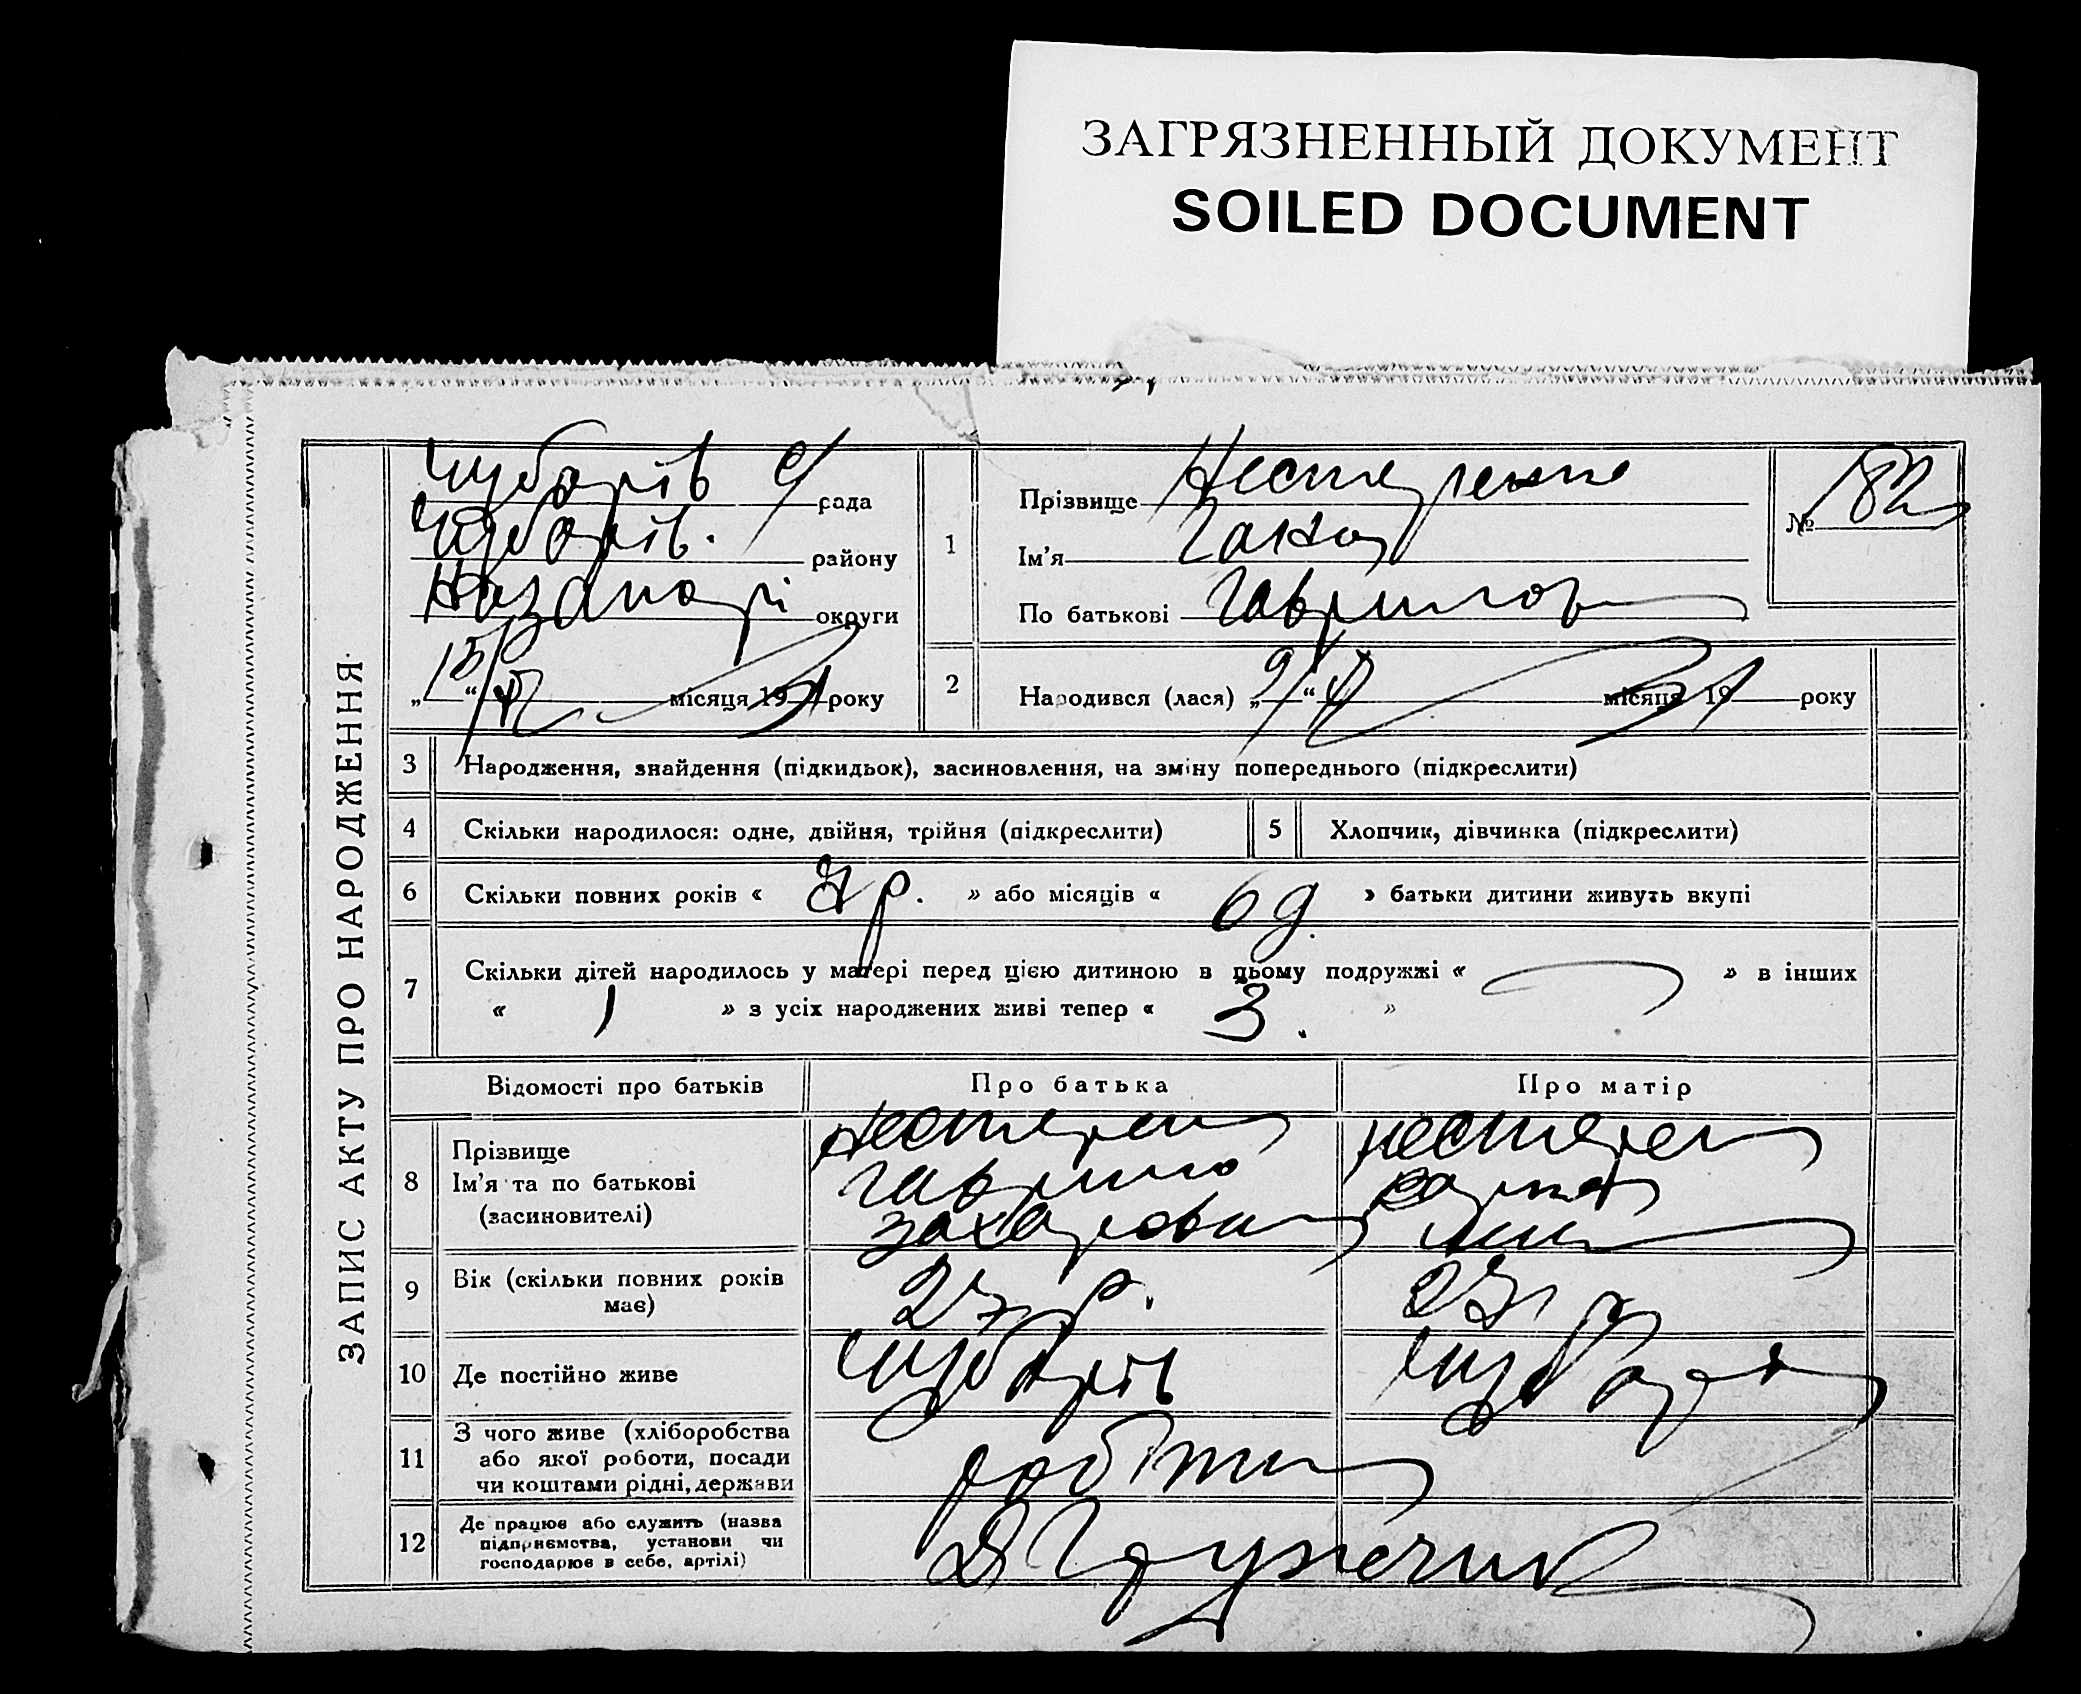 ЗАГРЯЗНЕННЫЙ ДОКУМЕНТ
SOILED DOCUMENT
ЗАПИС АКТУ ПРО НАРОДЖЕННЯ
Чубарів с/рада
Чубарів. району
округи
„15“ місяця 1931 року
1
Прізвище Нестеренко
Ім'я Ганна
По батькові Гаврилов
№ 182
2
Народився (лася) „9“ місяця 1931 року
3 Народження, знайдення (підкидьок), засиновлення, на зміну попереднього (підкреслити)
4 Скільки народилося: одне, двійня, трійня (підкреслити)
5 Хлопчик, дівчинка (підкреслити)
6 Скільки повних років « р. » або місяців « » батьки дитини живуть вкупі
7 Скільки дітей народилось у матері перед цією дитиною в цьому подружжі « » в інших
« 1 » з усіх народжених живі тепер « 3. »
Відомості про батьків
Про батька
Про матір
8 Прізвище
Ім'я та по батькові
(засиновителі)
Нестерен
Гаврило
Захарович
Нестерен
9 Вік (скільки повних років
має)
27 р.
27
10 Де постійно живе
Чубарів
11 З чого живе (хліборобства
або якої роботи, посади
чи коштами рідні, держави
робітни
12 Де працює або служить (назва
підприємства, установи чи
господарює в себе, артілі)